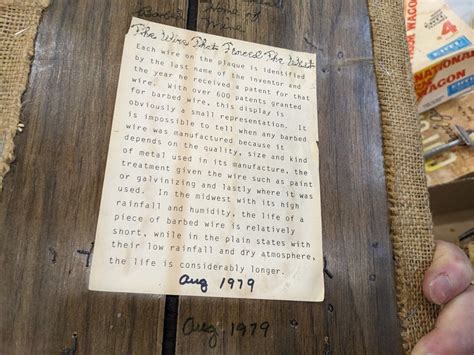 Home of
Wire
The Wire That Fenced The West
Each wire on the plaque is identified
by the last name of the inventor and
the year he received a patent for that
wire. With over 600 patents granted
for barbed wire, this display is
obviously a small representation. It
is impossible to tell when any barbed
wire was manufactured because it
depends on the quality, size and kind
of metal used in its manufacture, the
treatment given the wire such as paint
or galvinizing and lastly where it was
used. In the midwest with its high
rainfall and humidity, the life of a
piece of barbed wire is relatively
short, while in the plain states with
their low rainfall and dry atmosphere,
the life is considerably longer.
Aug 1979
Aug. 1979
WAGON
NATIONAL
WAGON
4